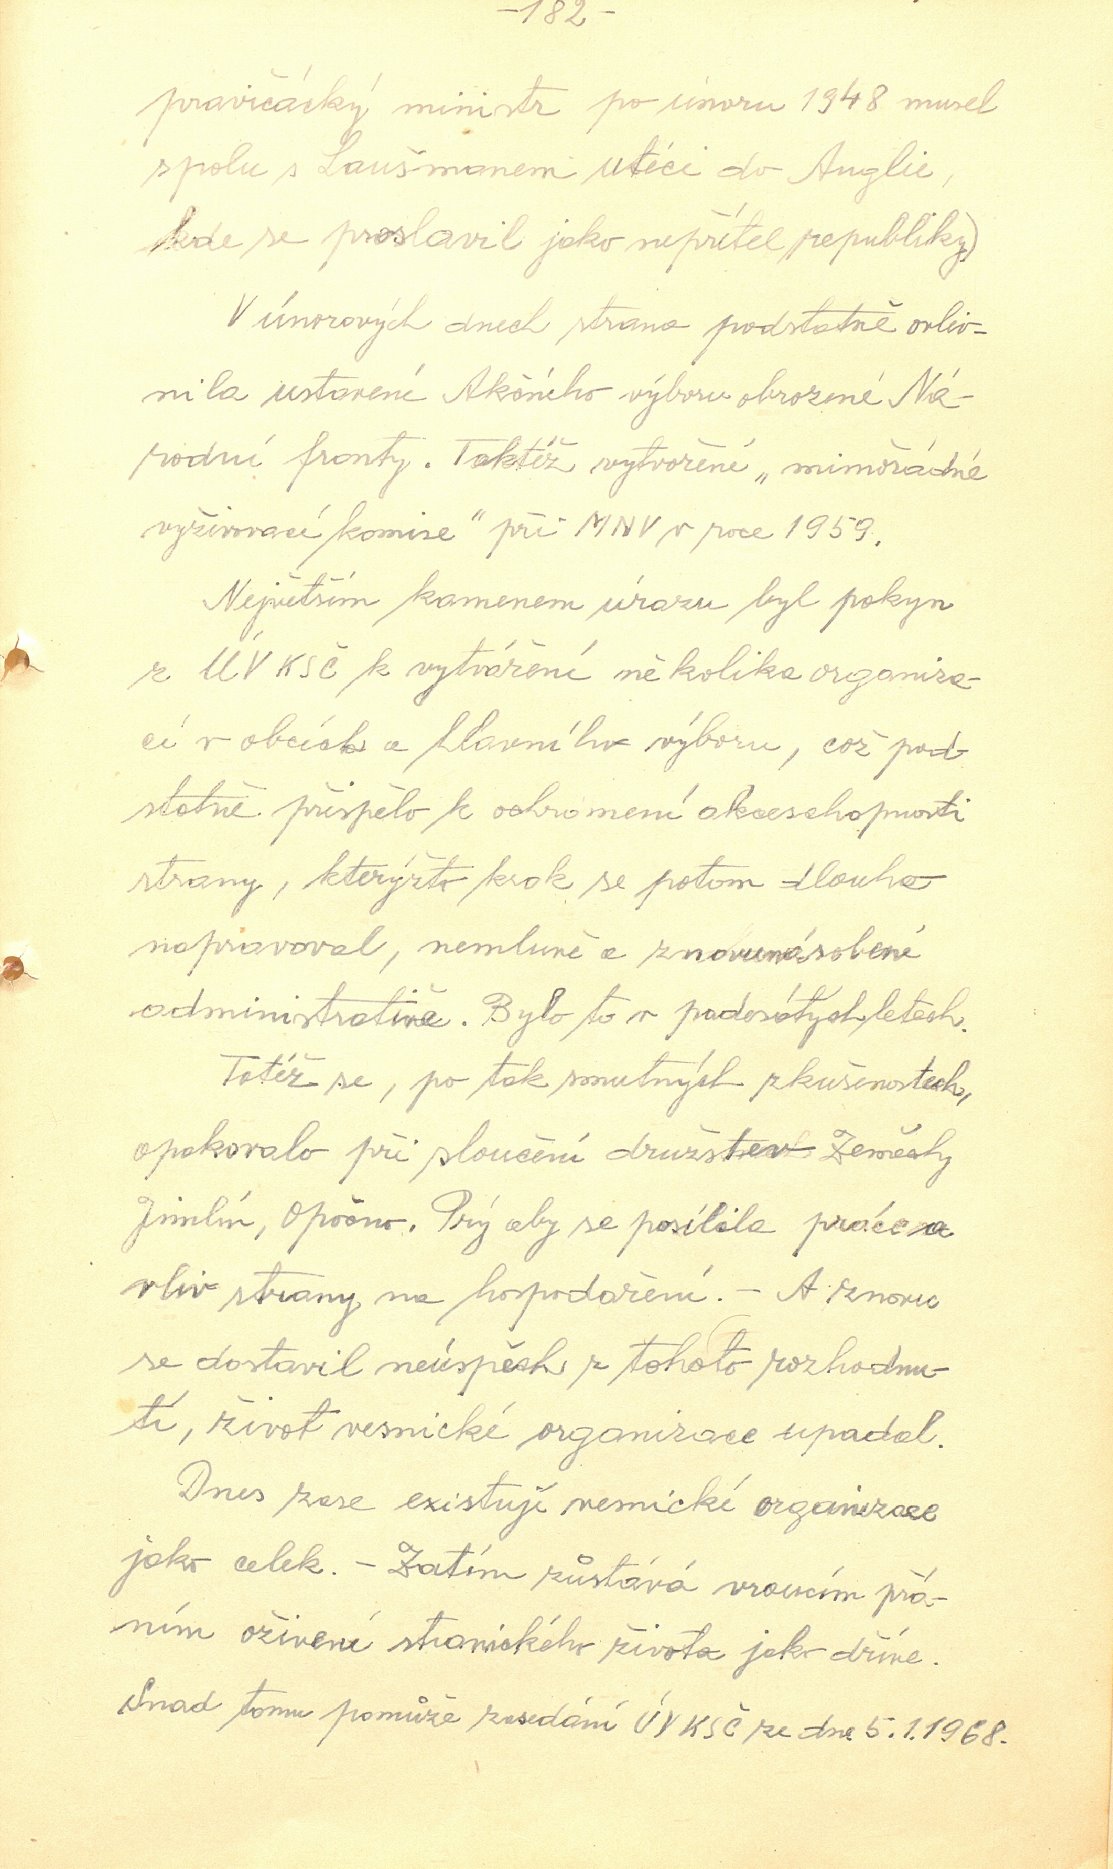 -182-
pravičácký ministr po únoru 1948 musel
spolu s Laušmanem utéci do Anglie,
kde se proslavil jako nepřítel republiky)
V únorových dnech strana podstatně ovliv-
nila ustavení Akčního výboru obrozené Ná-
rodní fronty. Taktéž vytvoření „mimořádné
vyživovací komise" při MNV v roce 1959.
Největším kamenem úrazu byl pokyn
z ÚV KSČ k vytváření několika organiza-
cí v obcích a hlavního výboru, což pod-
statně přispělo k ochromení akceschopnosti
strany, kterýžto krok se potom dlouho
napravoval, nemluvě a znovunásobené
administrativě. Bylo to v padesátých letech.
Totéž se, po tak smutných zkušenostech,
opakovalo při sloučení družstev Zeměchy
Jimlín, Opočno. Prý aby se posílila práce a
vliv strany na hospodaření. - A znovu
se dostavil neúspěch z tohoto rozhodnu-
tí, život vesnické organizace upadal.
Dnes zase existují vesnické organizace
jako celek. - Zatím zůstává vroucím přá-
ním oživení stranického života jak dříve.
Snad tomu pomůže zasedání ÚV KSČ ze dne 5.1.1968.